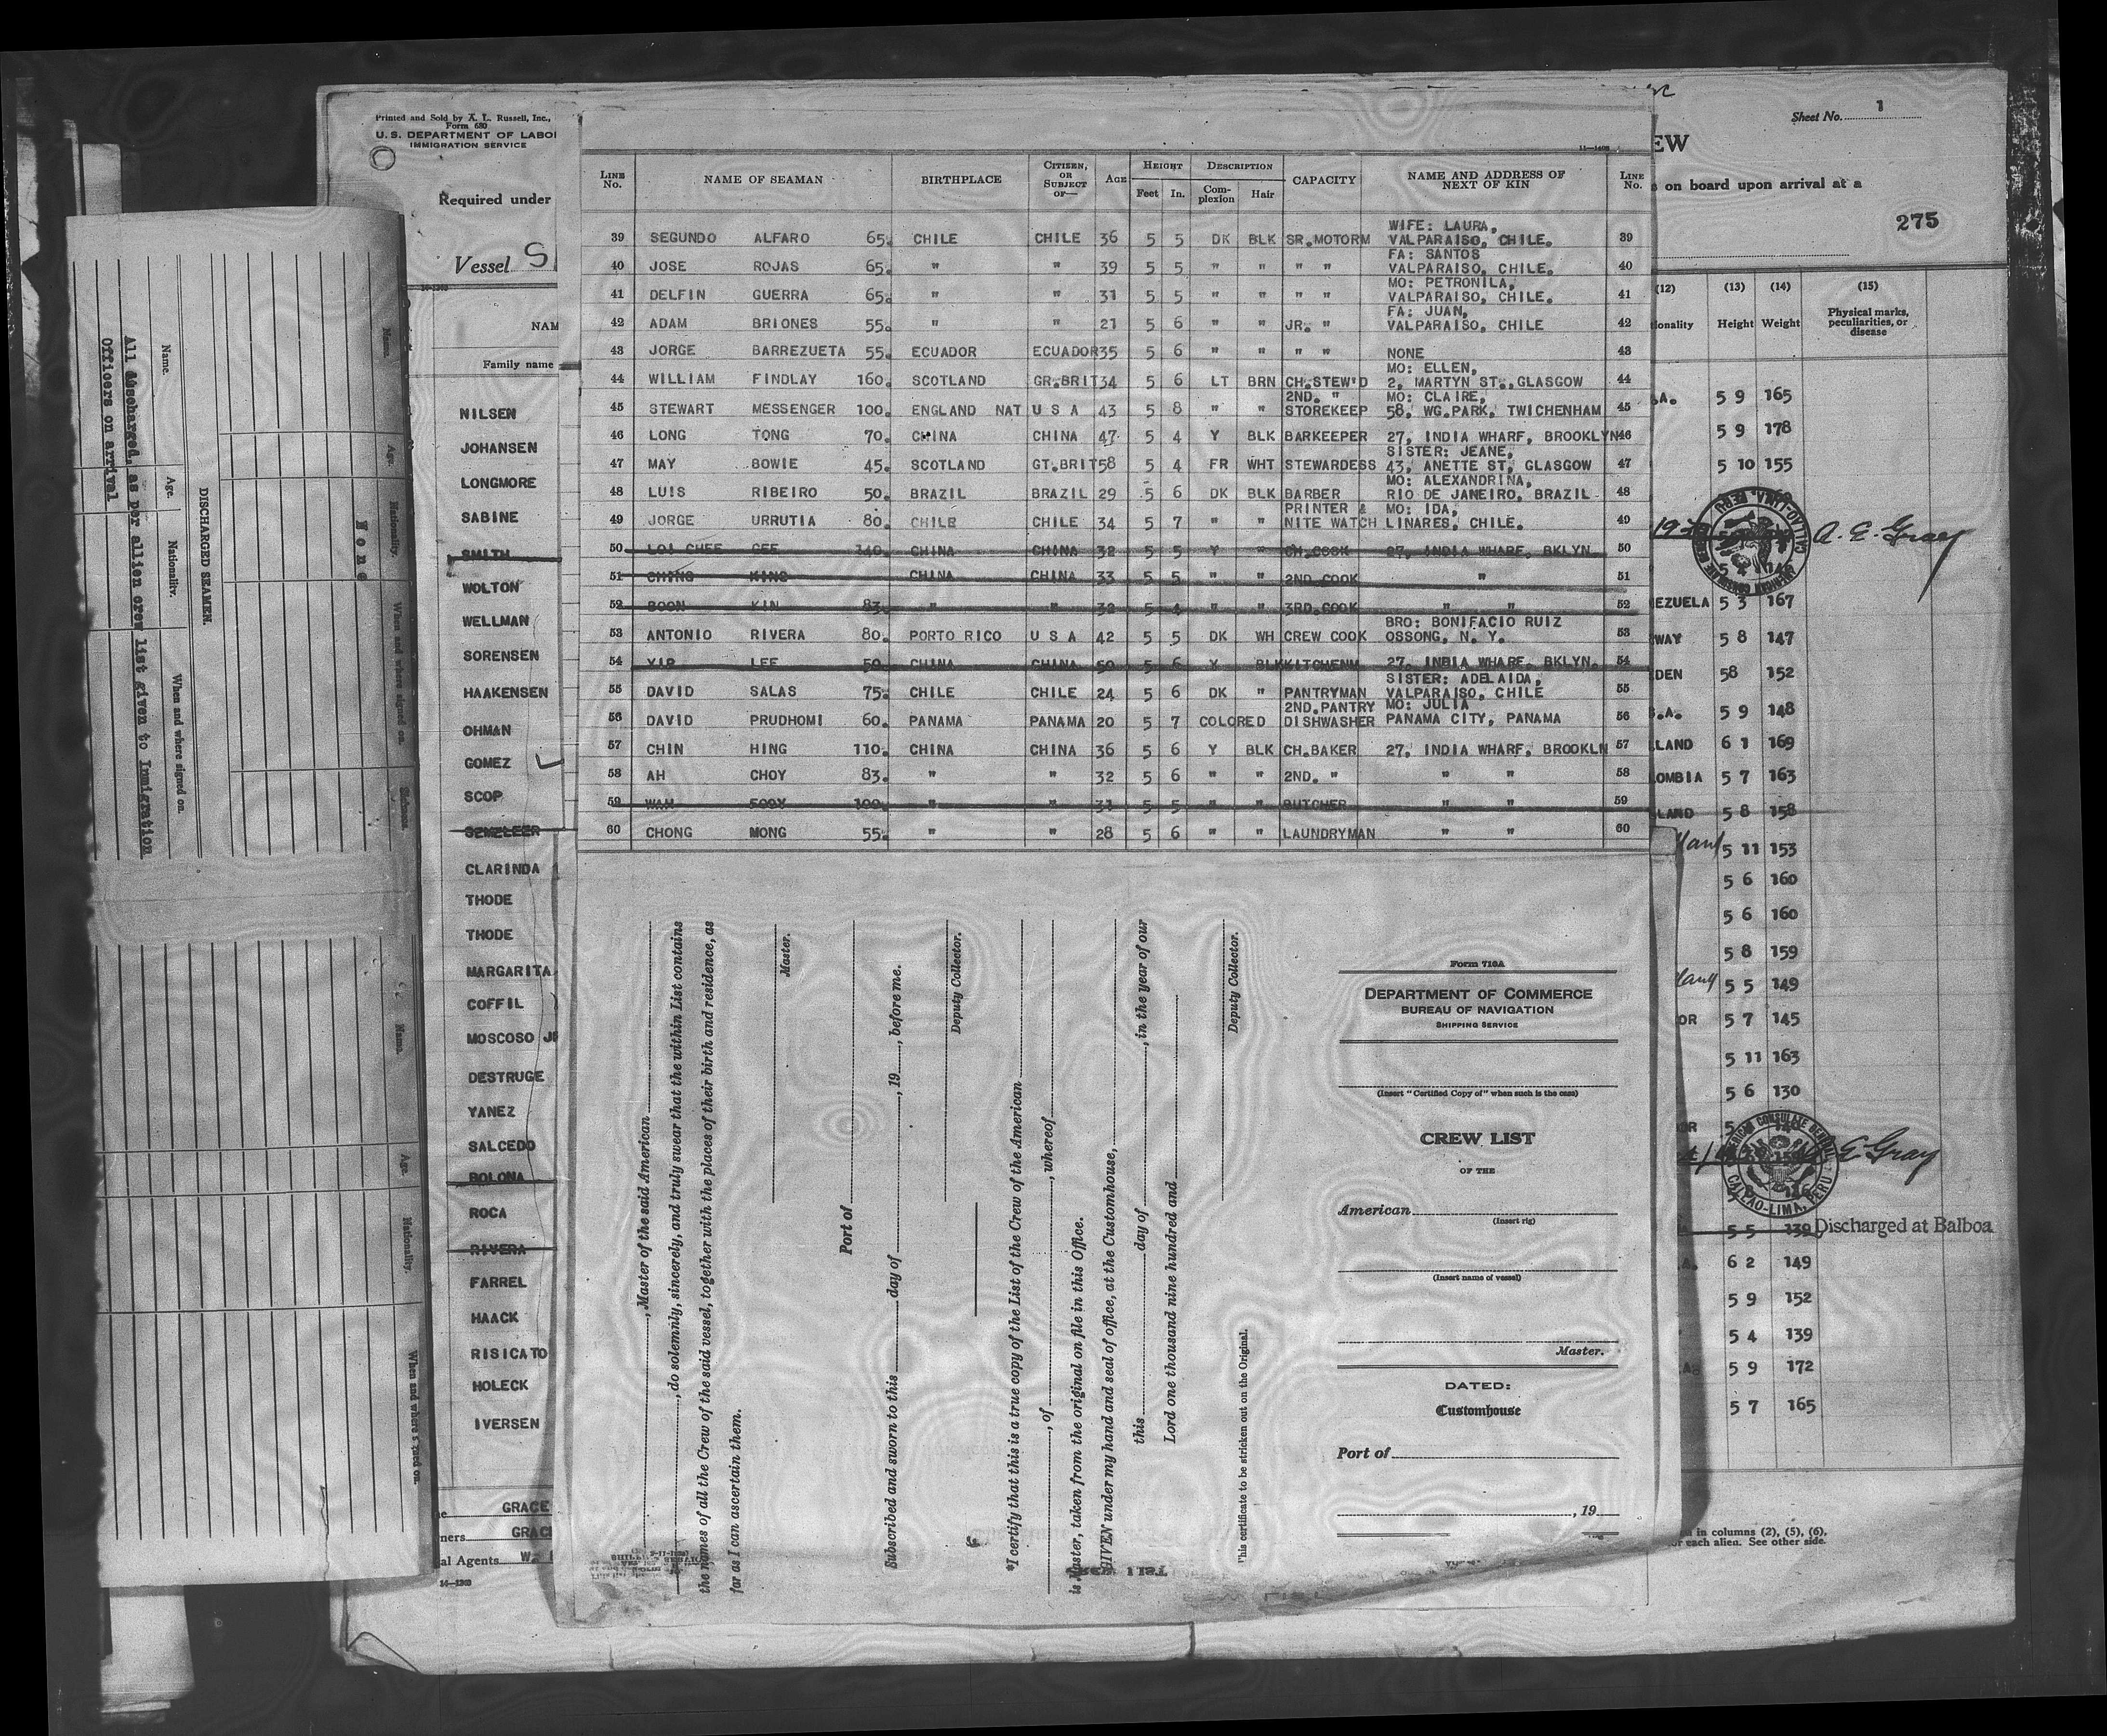 Printed and Sold by A. L. Russell, Inc.,
Form 680
U.S. DEPARTMENT OF LABOR
IMMIGRATION SERVICE
Required under
Vessel S
NAM
Family name
NILSEN
JOHANSEN
LONGMORE
SABINE
SMITH
WOLTON
WELLMAN
SORENSEN
HAAKENSEN
OHMAN
GOMEZ
SCOP
CLARINDA
THODE
THODE
MARGARITA
COFFIL
MOSCOSO
DESTRUGE
YANEZ
SALCEDO
BOLONA
ROCA
RIVERA
FARREL
HAACK
RISICATO
HOLECK
IVERSEN
GRACE
ners GRACE
al Agents
14-1240
11-1408
LINE No. NAME OF SEAMAN BIRTHPLACE CITIZEN, OR SUBJECT OF— AGE HEIGHT Feet In. DESCRIPTION Complexion Hair CAPACITY NAME AND ADDRESS OF NEXT OF KIN LINE No.
WIFE: LAURA,
39 SEGUNDO ALFARO 65. CHILE CHILE 36 5 5 DK BLK SR.MOTORM VALPARAISO, CHILE. 39
FA: SANTOS
40 JOSE ROJAS 65. " " 39 5 5 " " " " VALPARAISO, CHILE. 40
MO: PETRONILA,
41 DELFIN GUERRA 65. " " 31 5 5 " " " " VALPARAISO, CHILE. 41
FA: JUAN,
42 ADAM BRIONES 55. " " 21 5 6 " " JR. " VALPARAISO, CHILE 42
43 JORGE BARREZUETA 55. ECUADOR ECUADOR 35 5 6 " " " " NONE 43
MO: ELLEN,
44 WILLIAM FINDLAY 160. SCOTLAND GR.BRIT 34 5 6 LT BRN CH.STEW'D 2, MARTYN ST., GLASGOW 44
2ND. " MO: CLAIRE,
45 STEWART MESSENGER 100. ENGLAND NAT U S A 43 5 8 " " STOREKEEP 58, WG.PARK, TWICHENHAM 45
46 LONG TONG 70. CHINA CHINA 47 5 4 Y BLK BARKEEPER 27, INDIA WHARF, BROOKLYN 46
SISTER: JEANE,
47 MAY BOWIE 45. SCOTLAND GT.BRIT 58 5 4 FR WHT STEWARDESS 43, ANETTE ST, GLASGOW 47
MO: ALEXANDRINA,
48 LUIS RIBEIRO 50. BRAZIL BRAZIL 29 5 6 DK BLK BARBER RIO DE JANEIRO, BRAZIL 48
PRINTER & MO: IDA,
49 JORGE URRUTIA 80. CHILE CHILE 34 5 7 " " NITE WATCH LINARES, CHILE. 49
50 LOI CHEE GEE 140. CHINA CHINA 32 5 5 Y " CH.COOK 27, INDIA WHARF, BKLYN. 50
51 CHING KING CHINA CHINA 33 5 5 " " 2ND COOK " 51
52 BOON KIN 83. " " 32 5 4 " " 3RD.COOK " " 52
BRO: BONIFACIO RUIZ
53 ANTONIO RIVERA 80. PORTO RICO U S A 42 5 5 DK WH CREW COOK OSSONG, N. Y. 53
54 YIP LEE 50. CHINA CHINA 50 5 6 Y BLK KITCHENM 27, INDIA WHARF, BKLYN. 54
SISTER: ADELAIDA,
55 DAVID SALAS 75. CHILE CHILE 24 5 6 DK " PANTRYMAN VALPARAISO, CHILE 55
2ND.PANTRY MO: JULIA
56 DAVID PRUDHOMI 60. PANAMA PANAMA 20 5 7 COLORED DISHWASHER PANAMA CITY, PANAMA 56
57 CHIN HING 110. CHINA CHINA 36 5 6 Y BLK CH.BAKER 27, INDIA WHARF, BROOKLN 57
58 AH CHOY 83. " " 32 5 6 " " 2ND. " " " 58
59 WAH 100. " " 31 5 5 " " BUTCHER " " 59
60 CHONG MONG 55. " " 28 5 6 " " LAUNDRYMAN " " 60
, Master of the said American
, do solemnly, sincerely, and truly swear that the within List contains
the names of all the Crew of the said vessel, together with the places of their birth and residence, as
far as I can ascertain them.
Master.
Port of
Subscribed and sworn to this day of , 19 , before me.
Deputy Collector.
*I certify that this is a true copy of the List of the Crew of the American
, of , whereof
is Master, taken from the original on file in this Office.
GIVEN under my hand and seal of office, at the Customhouse,
this day of , in the year of our
Lord one thousand nine hundred and
Deputy Collector.
This certificate to be stricken out on the Original.
Form 710A
DEPARTMENT OF COMMERCE
BUREAU OF NAVIGATION
SHIPPING SERVICE
(Insert "Certified Copy of" when such is the case)
CREW LIST
OF THE
American
(Insert rig)
(Insert name of vessel)
Master.
DATED:
Customhouse
Port of
, 19
Sheet No. 1
EW
s on board upon arrival at a
275
(12) (13) (14) (15)
ionality Height Weight Physical marks, peculiarities, or disease
.A. 5 9 165
5 9 178
5 10 155
A. E. Gray
EZUELA 5 3 167
WAY 5 8 147
DEN 58 152
.A. 5 9 148
LAND 6 1 169
OMBIA 5 7 163
LAND 5 8 158
5 11 153
5 6 160
5 6 160
5 8 159
5 5 149
OR 5 7 145
5 11 163
5 6 130
AMERICAN CONSULATE GENERAL
CALLAO-LIMA, PERU
E Gray
5 5 139 Discharged at Balboa
6 2 149
5 9 152
5 4 139
5 9 172
5 7 165
in columns (2), (5), (6),
or each alien. See other side.
Officers on arrival
All discharged, as per alien crew list given to Immigration
Name. Age. Nationality. When and where signed on.
DISCHARGED SEAMEN.
None
Name. Age. Nationality. When and where signed on.
Name. Age. Nationality When and where signed on.